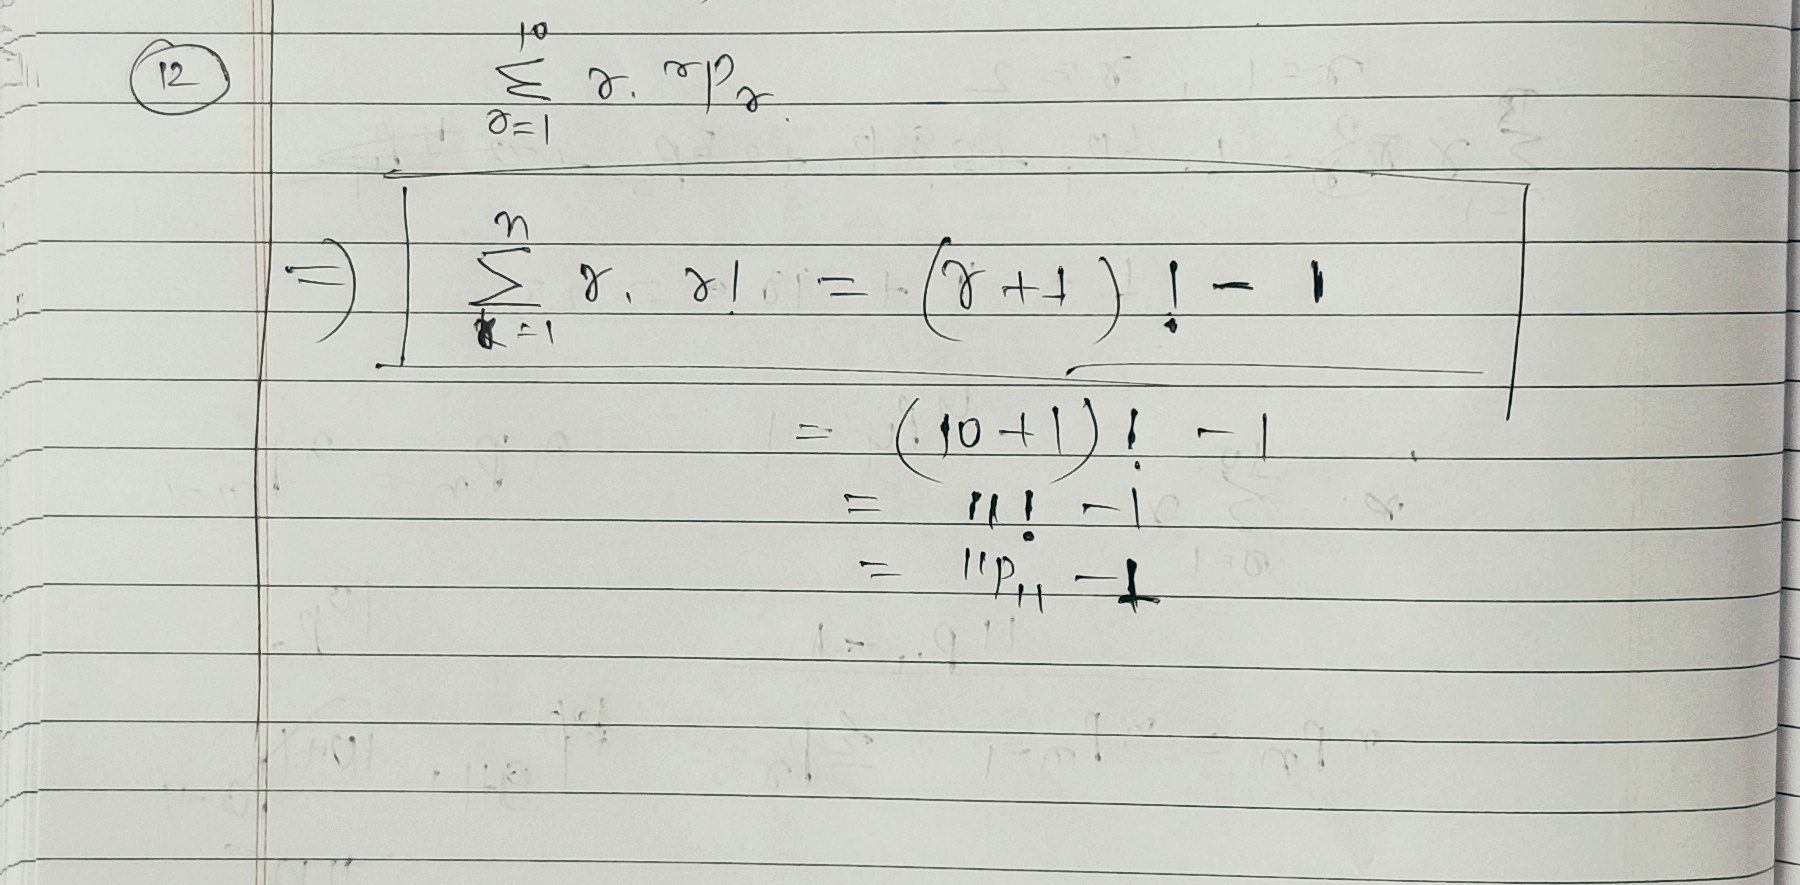 12
10
Σ r. rPr.
r=1
=> n
Σ r. r! = (r+1)! - 1
k=1
= (10+1)! - 1
= 11! - 1
= 11P11 - 1